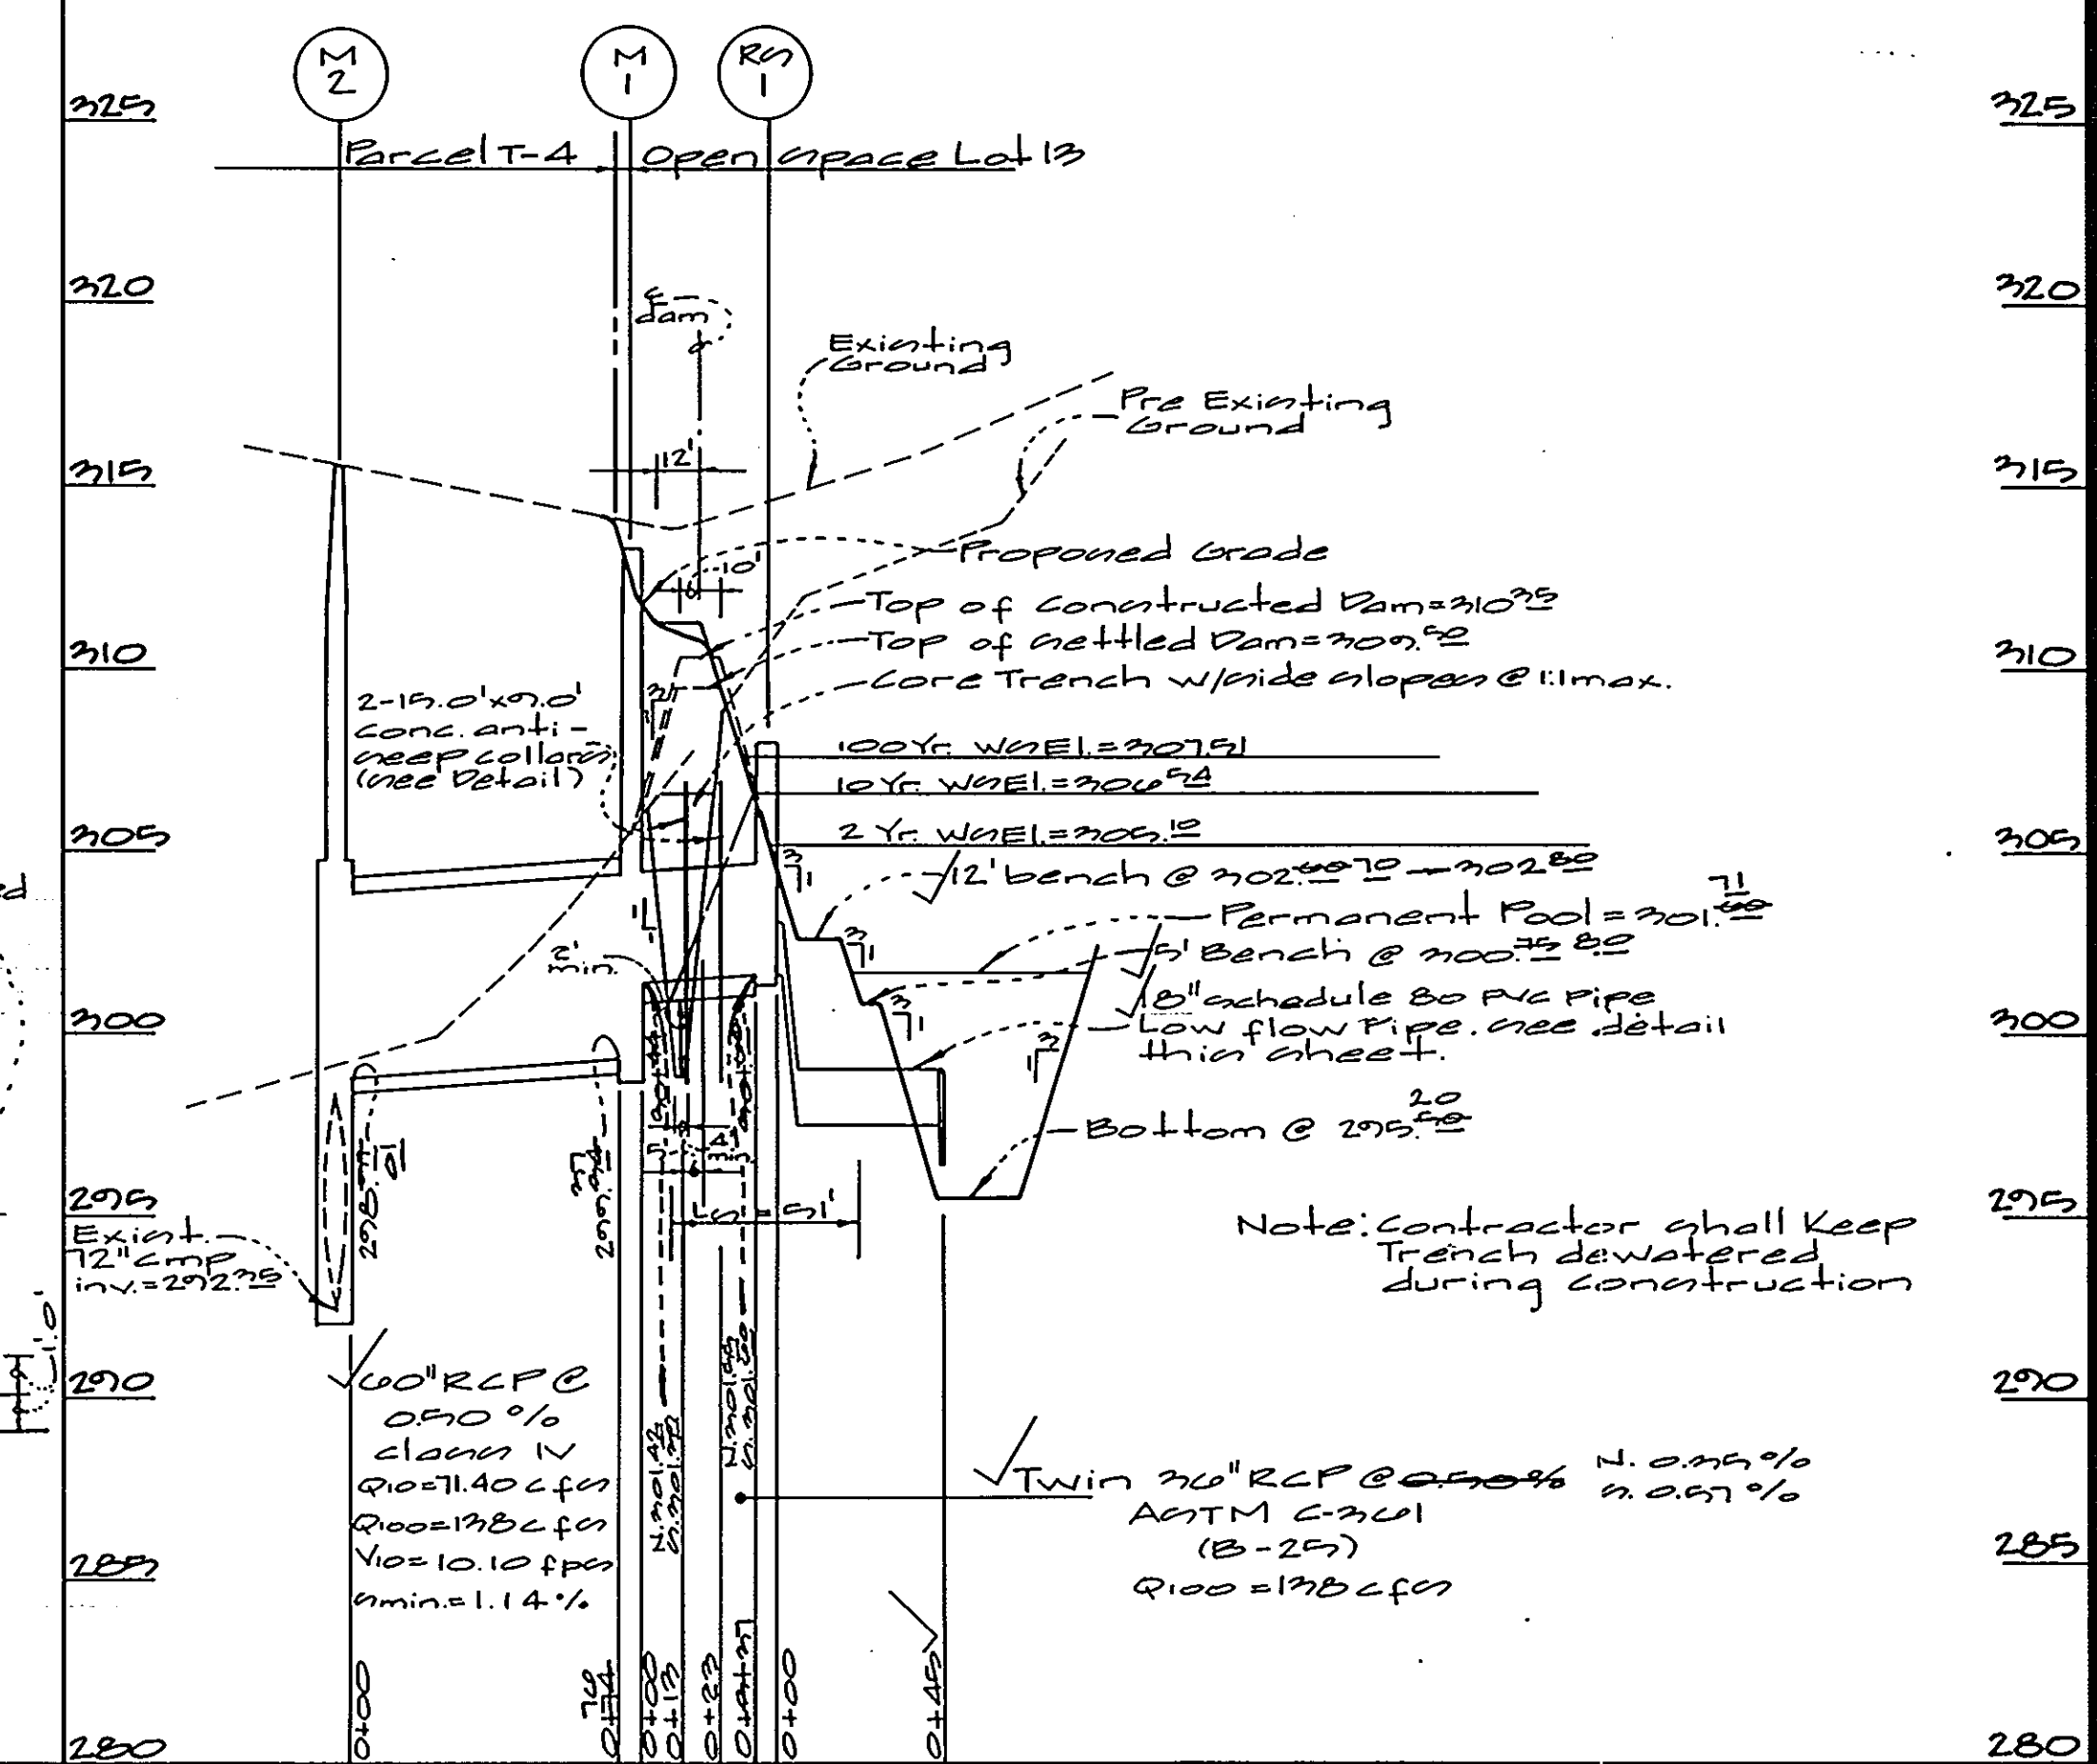 M
2
M
1
RS
1
325
325
Parcel T-4
Open Space Lot 13
320
320
℄
dam
Existing
Ground
Pre Existing
Ground
12'
315
315
Proposed Grade
10'
6'
Top of Constructed Dam=310.35
Top of Settled Dam=309.50
310
310
Core Trench w/side slopes @ 1:1 max.
2-15.0'x9.0'
Conc. anti-
seep collars
(see Detail)
3
1
100 Yr. WSEl.=307.51
10 Yr. WSEl.=306.54
2 Yr. WSEl.=305.10
305
305
3
1
12' bench @ 302.70 - 302.80
71
Permanent Pool = 301.60
3
1
5' Bench @ 300.75 80
1
1
2'
min.
18" schedule 80 PVC Pipe
Low flow Pipe. See detail
this sheet.
300
300
3
1
3
1
20
Bottom @ 295.50
4'
min.
298.01
37
299.34
295
295
LS = 51'
Exist.
72" cmp
inv.=292.35
Note: Contractor shall Keep
Trench dewatered
during construction
1.0'
290
290
60" RCP @
0.50 %
class IV
Q10=71.40 cfs
Q100=138 cfs
V10=10.10 fps
Smin.=1.14 %
N.301.42
Twin 36" RCP @ 0.50% N. 0.35 %
S. 0.57 %
ASTM C-361
(B-25)
Q100 = 138 cfs
285
285
0+00
76
0+74
0+00
0+13
0+23
0+00
0+45
280
280